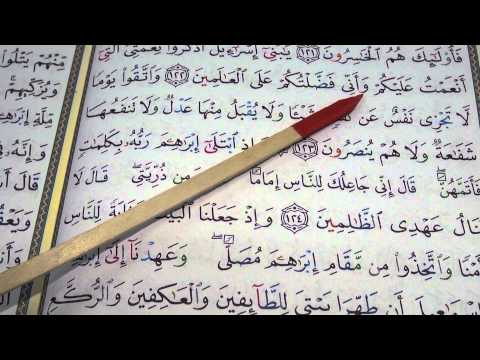 فَأُو۟لَٰٓئِكَ هُمُ ٱلْخَٰسِرُونَ ١٢١ يَٰبَنِىٓ إِسْرَٰٓءِيلَ ٱذْكُرُوا۟ نِعْمَتِىَ ٱلَّتِىٓ
أَنْعَمْتُ عَلَيْكُمْ وَأَنِّى فَضَّلْتُكُمْ عَلَى ٱلْعَٰلَمِينَ ١٢٢ وَٱتَّقُوا۟ يَوْمًا
لَّا تَجْزِى نَفْسٌ عَن شَيْـًٔا وَلَا يُقْبَلُ مِنْهَا عَدْلٌ وَلَا تَنفَعُهَا
شَفَٰعَةٌ وَلَا هُمْ يُنصَرُونَ ١٢٣ إِذِ ٱبْتَلَىٰٓ إِبْرَٰهِـۧمَ رَبُّهُۥ بِكَلِمَٰتٍ
فَأَتَمَّهُنَّ قَالَ إِنِّى جَاعِلُكَ لِلنَّاسِ إِمَامًا مِن ذُرِّيَّتِى قَالَ لَا
نَالُ عَهْدِى ٱلظَّٰلِمِينَ ١٢٤ وَإِذْ جَعَلْنَا ٱلْبَيْتَ لِّلنَّاسِ
وَٱتَّخِذُوا۟ مِن مَّقَامِ إِبْرَٰهِـۧمَ مُصَلًّى وَعَهِدْنَآ إِلَىٰٓ
أَن طَهِّرَا بَيْتِىَ لِلطَّآئِفِينَ وَٱلْعَٰكِفِينَ وَٱلرُّكَّعِ
مِنْهُمْ يَتْلُوا۟
وَيُزَكِّيهِمْ
مِلَّةِ
وَإِنَّهُۥ
قَالَ